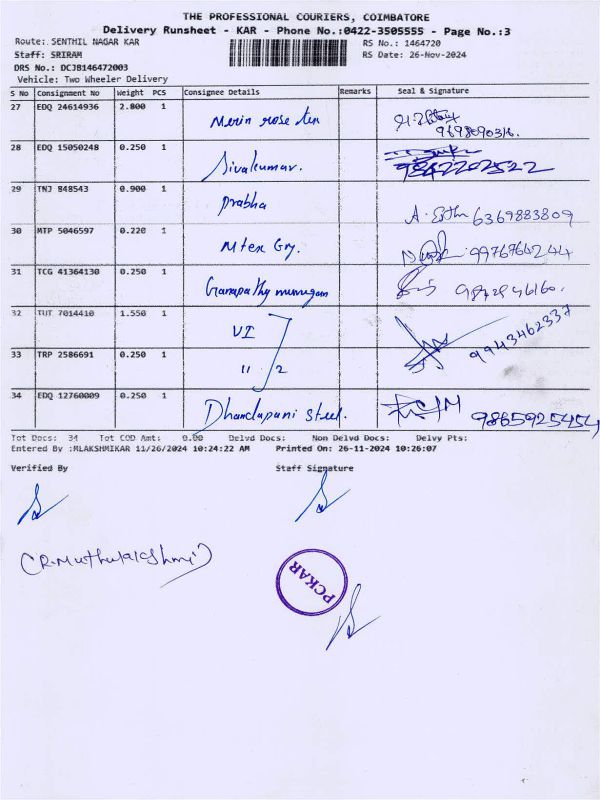 THE PROFESSIONAL COURIERS, COIMBATORE
Delivery Runsheet - KAR - Phone No.:0422-3505555 - Page No.:3
Route: SENTHIL NAGAR KAR RS No.: 1464720
Staff: SRIRAM RS Date: 26-Nov-2024
DRS No.: DCJB146472003
Vehicle: Two Wheeler Delivery
S No Consignment No Weight PCS Consignee Details Remarks Seal & Signature
27 EDQ 24614936 2.800 1
Merin rose
9698090316.
28 EDQ 15050248 0.250 1
Sivakumar. 9842202522
29 TNJ 848543 0.900 1
Prabha
6369883809
30 MTP 5046597 0.220 1
Mtex Gry. 9976764244
31 TCG 41364130 0.250 1
Ganapathy murugan
32 TUT 7014410 1.550 1
VI 9943462337
33 TRP 2586691 0.250 1
11 2
34 EDQ 12760009 0.250 1
Dhandapani steel. 9865925454
Tot Docs: 34 Tot COD Amt: 0.00 Delvd Docs: Non Delvd Docs: Delvy Pts:
Entered By :MLAKSHMIKAR 11/26/2024 10:24:22 AM Printed On: 26-11-2024 10:26:07
Verified By Staff Signature
(R.Muthulakshmi)
PCKAR